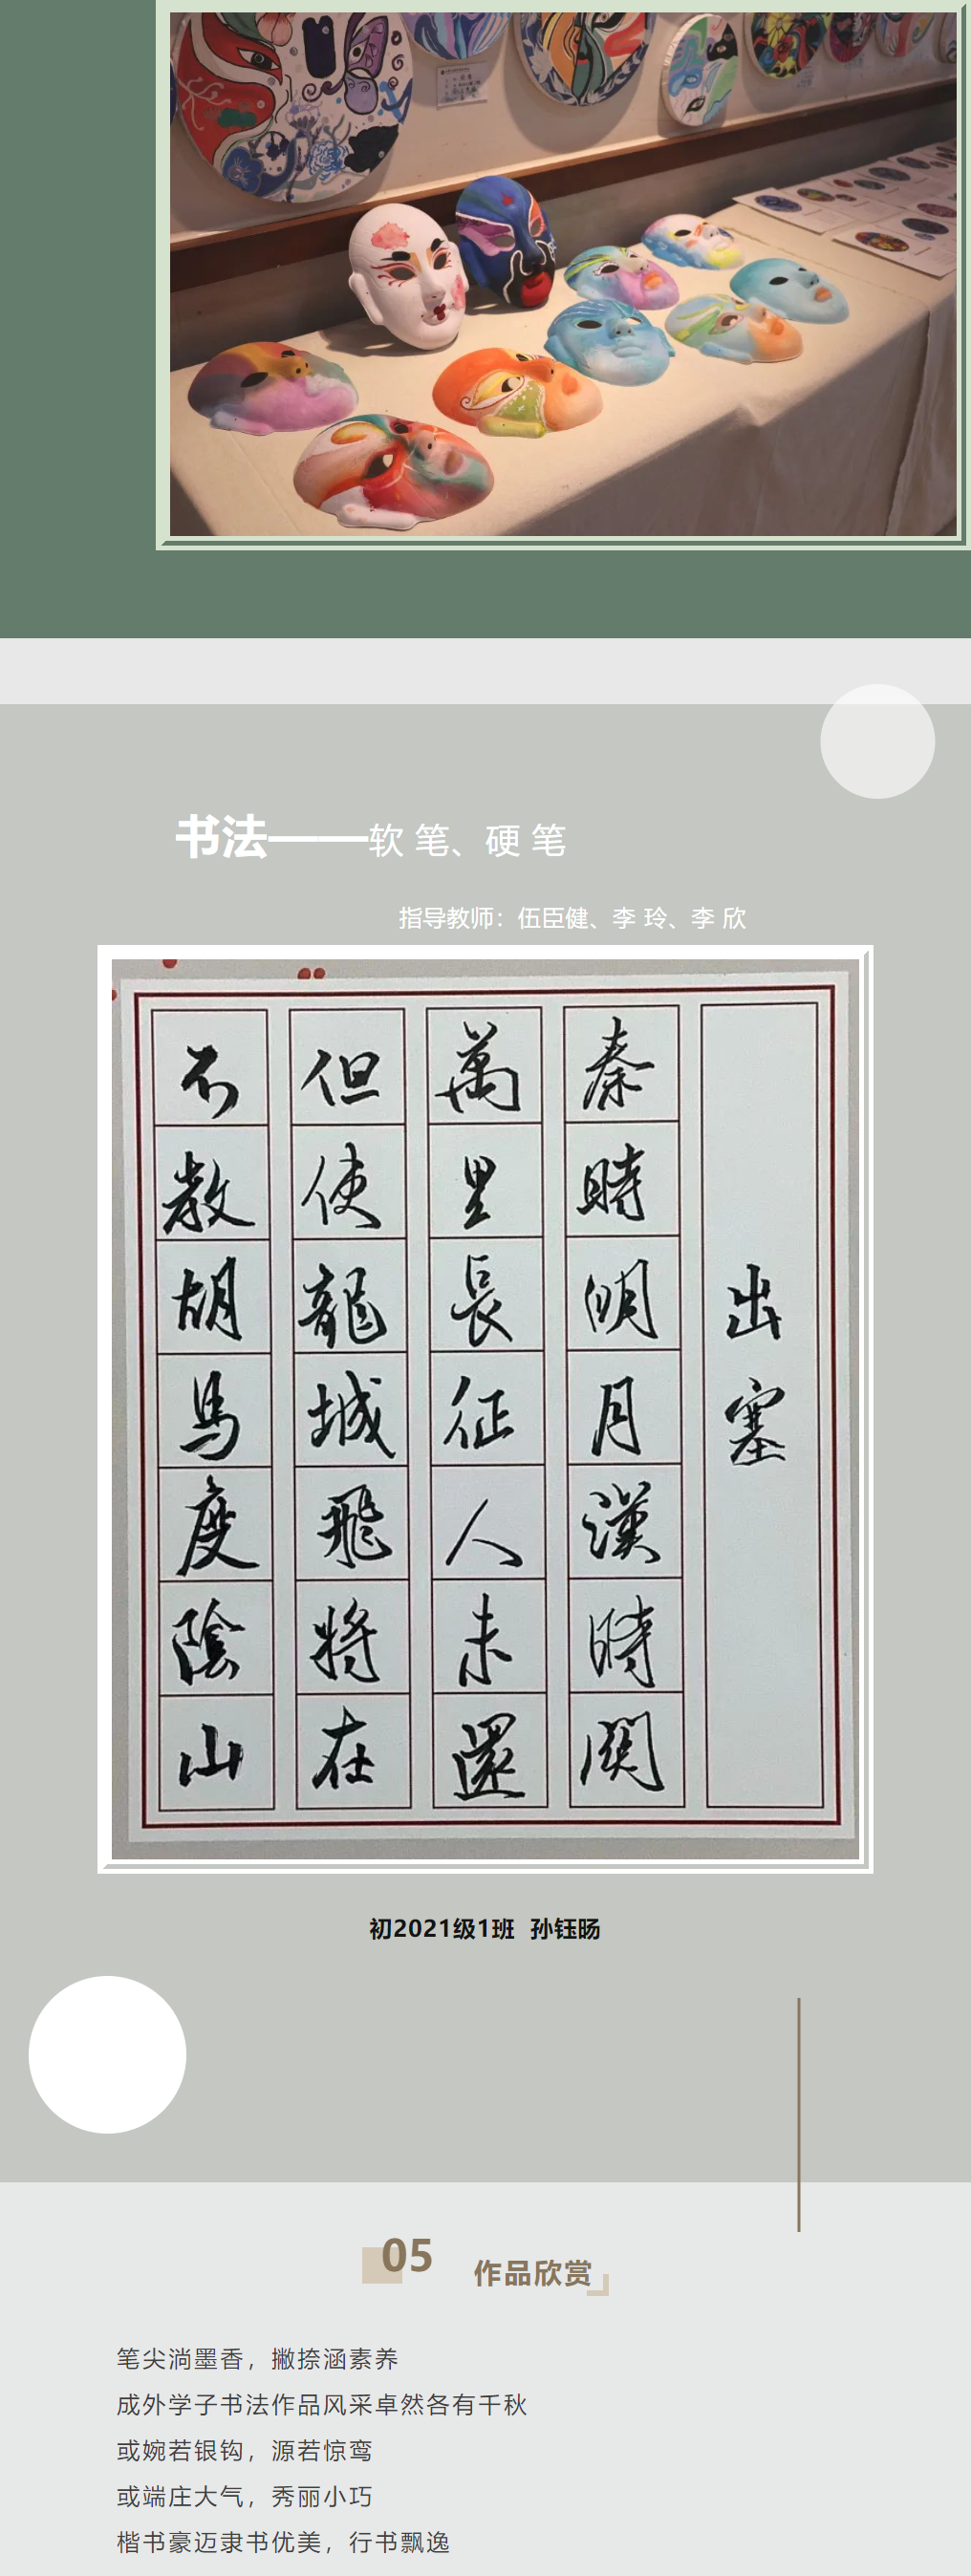 书法——软 笔、硬 笔
指导教师：伍臣健、李 玲、李 欣
出塞
秦時明月漢時關
萬里長征人未還
但使龍城飛將在
不教胡馬度陰山
初2021级1班 孙钰旸
05 作品欣赏
笔尖淌墨香，撇捺涵素养
成外学子书法作品风采卓然各有千秋
或婉若银钩，源若惊鸾
或端庄大气，秀丽小巧
楷书豪迈隶书优美，行书飘逸